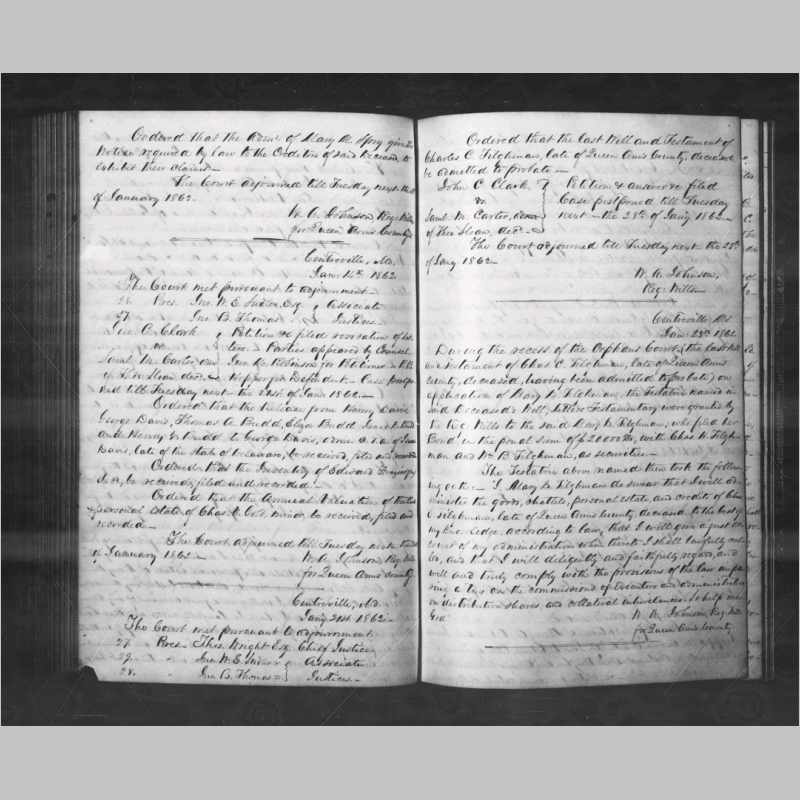 Ordered that the Admr of Mary R. Spry give the
notice required by law to the Creditors of said deceased to
exhibit their claims—
The Court adjourned till Tuesday next the
of January 1862.
W. A. Johnson, Reg. Wills
for Queen Anns County
Centreville, Md.
Jan. 14th 1862
The Court met pursuant to adjournment—
26. Pres. Jno. W. E. Sudler, Esq. Associate
27. " Jno. B. Thomas Justices.—
Jno. C. Clark Petition &c filed
vs Parties appeared by Counsel
Saml. M. Carter Adm. Robinson for
of Sloan, decd. for Defendant— Case post
ned till Tuesday next— the 21st of Jany 1862.—
Ordered that the release from Henry Davis
George Davis, Thomas A. Budd, Eliza Budd
and Henry Budd to George Davis,
Davis, late of the State of Delaware, be received, filed and recorded
Ordered that the Inventory of Edward
Jr., be received, filed and recorded—
Ordered that the Annual Valuation of the real
& personal Estate of Chas. C. minor, be received, filed and
recorded—
The Court adjourned till Tuesday next the
of January 1862—
W. A. Johnson, Reg. Wills
for Queen Anns County.
Centreville, Md.
Jany. 21st 1862—
The Court met pursuant to adjournment
27. Pres. Thos. Wright Esq. Chief Justice
27. " Jno. W. E. Sudler Associate
28. " Jno. B. Thomas Justices.—
Ordered that the last Will and Testament of
Charles C. Tilghman, late of Queen Anns County, deceased
be admitted to probate—
John C. Clark Petition & answer filed
vs Case postponed till Tuesday
Saml. M. Carter, Admr next— the 28th of Jany 1862—
of Sloan, decd.
The Court adjourned till Tuesday next the 28th
of Jany 1862—
W. A. Johnson,
Reg: Wills—
Centreville, Md
Jan. 23d 1862
During the recess of the Orphans Court, (the last Will
and Testament of Chas C. Tilghman, late of Queen Anns
County, deceased, having been admitted to probate) on
application of Mary N. Tilghman, the Testatrix named in
said Deceased's Will, Letters Testamentary were granted by
the Reg Wills to the said Mary N. Tilghman, who filed her
Bond in the penal sum of $20000, with Chas H. Tilgh
man and W. R. Tilghman, as securities—
The Testatrix above named then took the follow
ing oath:— I, Mary N. Tilghman do swear that I will ad
minister the goods, chattels, personal estate, and credits of Chas
C Tilghman, late of Queen Anns County, deceased to the best of
my knowledge, according to law, that I will give a just ac
count of my administration when thereto I shall lawfully cal
led, and that I will diligently and faithfully regard, and
well and truly comply with the provisions of the law impo
sing a tax on the commissions of Executors and administrators
on distributive shares, and collateral inheritances. So help me
God
W. A. Johnson Reg. Wills
for Queen Anns County